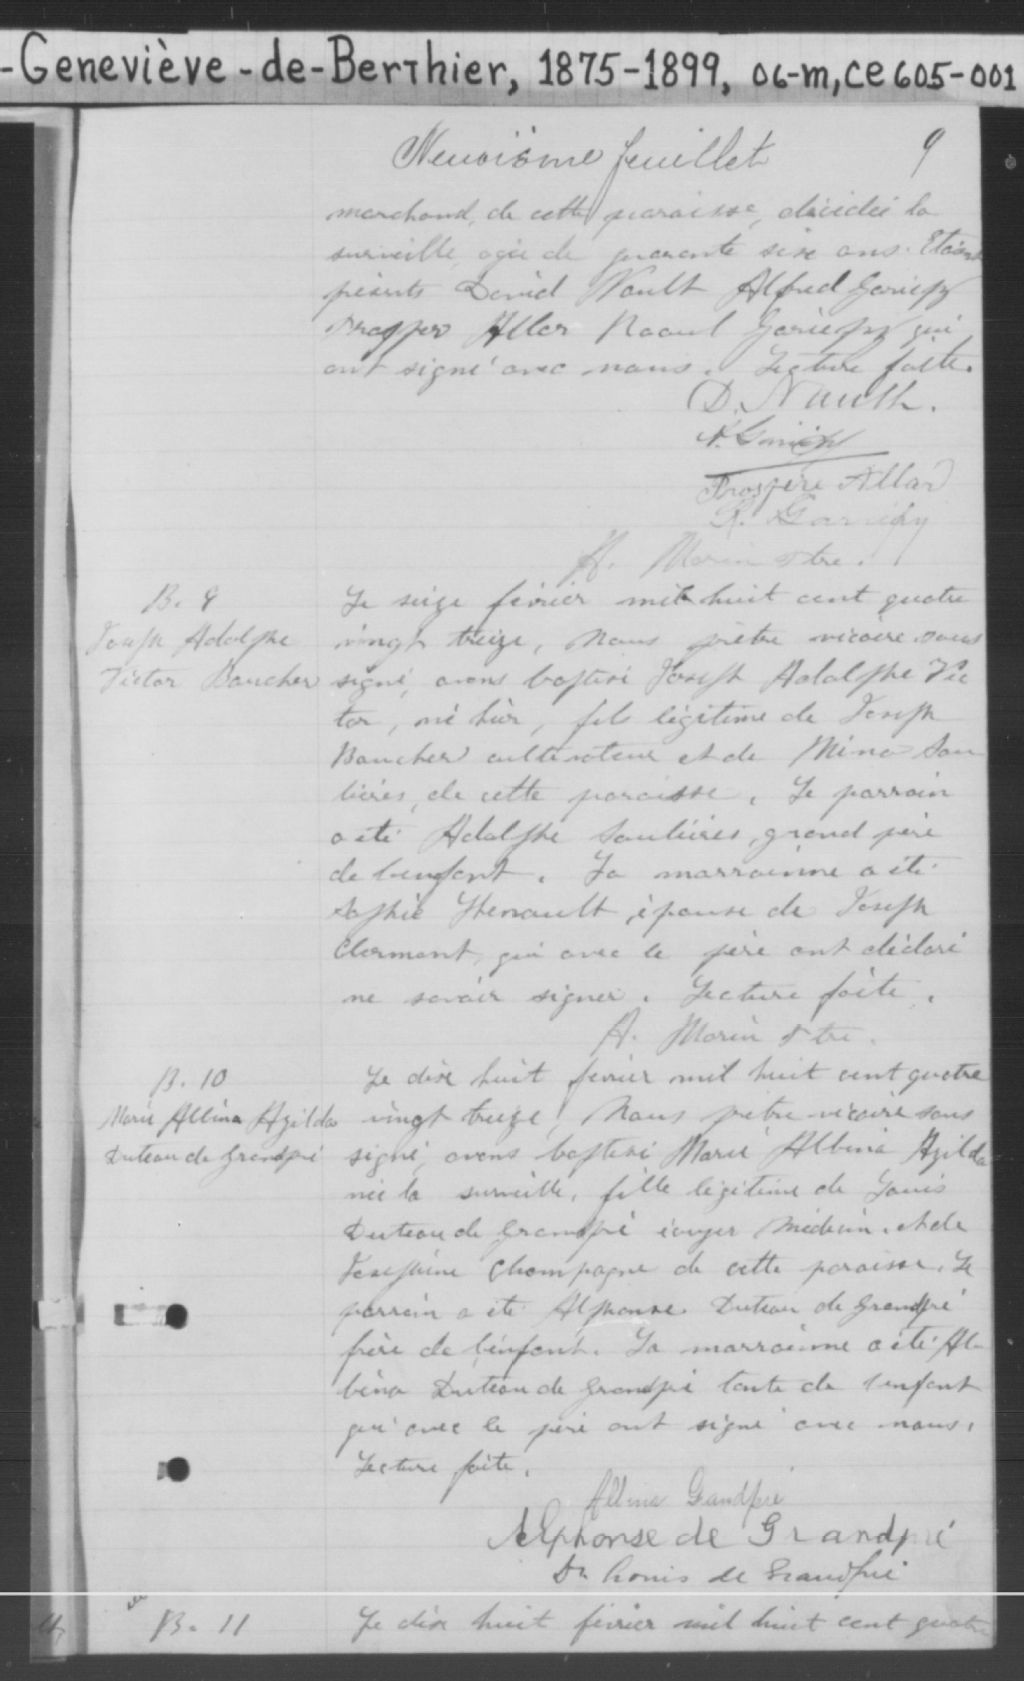 -Geneviève-de-Berthier, 1875-1899, 06-m, ce 605-001
Neuvième feuillet 9
marchand, de cette paroisse, décédée la
surveille, agée de quarante six ans. Etaient
présents David Nault Alfred Gariépy
Prosper Allar Raoul Gariépy qui
ont signé avec nous. Lecture faite.
D. Nault.
A. Gariépy
Prospère Allard
R. Gariépy
A. Morin Ptre.
B. 9
Joseph Adolphe
Victor Boucher
Le seize février mil huit cent quatre
vingt treize, Nous prêtre vicaire sous
signé, avons baptisé Joseph Adolphe Vic
tor, né hier, fils légitime de Joseph
Boucher cultivateur et de Mina Sou
lières, de cette paroisse. Le parrain
a été Adolphe Soulières, grand père
de l'enfant. La marraine a été
Sophie Henault, épouse de Joseph
Clermont, qui avec le père ont déclaré
ne savoir signer. Lecture faite.
A. Morin Ptre.
B. 10
Marie Albina Azilda
Duteau de Grandpré
Le dix huit février mil huit cent quatre
vingt treize, Nous prêtre vicaire sous
signé, avons baptisé Marie Albina Azilda
née la surveille, fille légitime de Louis
Duteau de Grandpré écuyer Médecin. et de
Josephine Champagne de cette paroisse. Le
parrain a été Alphonse Duteau de Grandpré
frère de l'enfant. La marraine a été Al-
bina Duteau de Grandpré tante de l'enfant
qui avec le père ont signé avec nous.
Lecture faite.
Albina Grandpré
Alphonse de Grandpré
Dr Louis de Grandpré
B. 11
Le dix huit février mil huit cent quatre